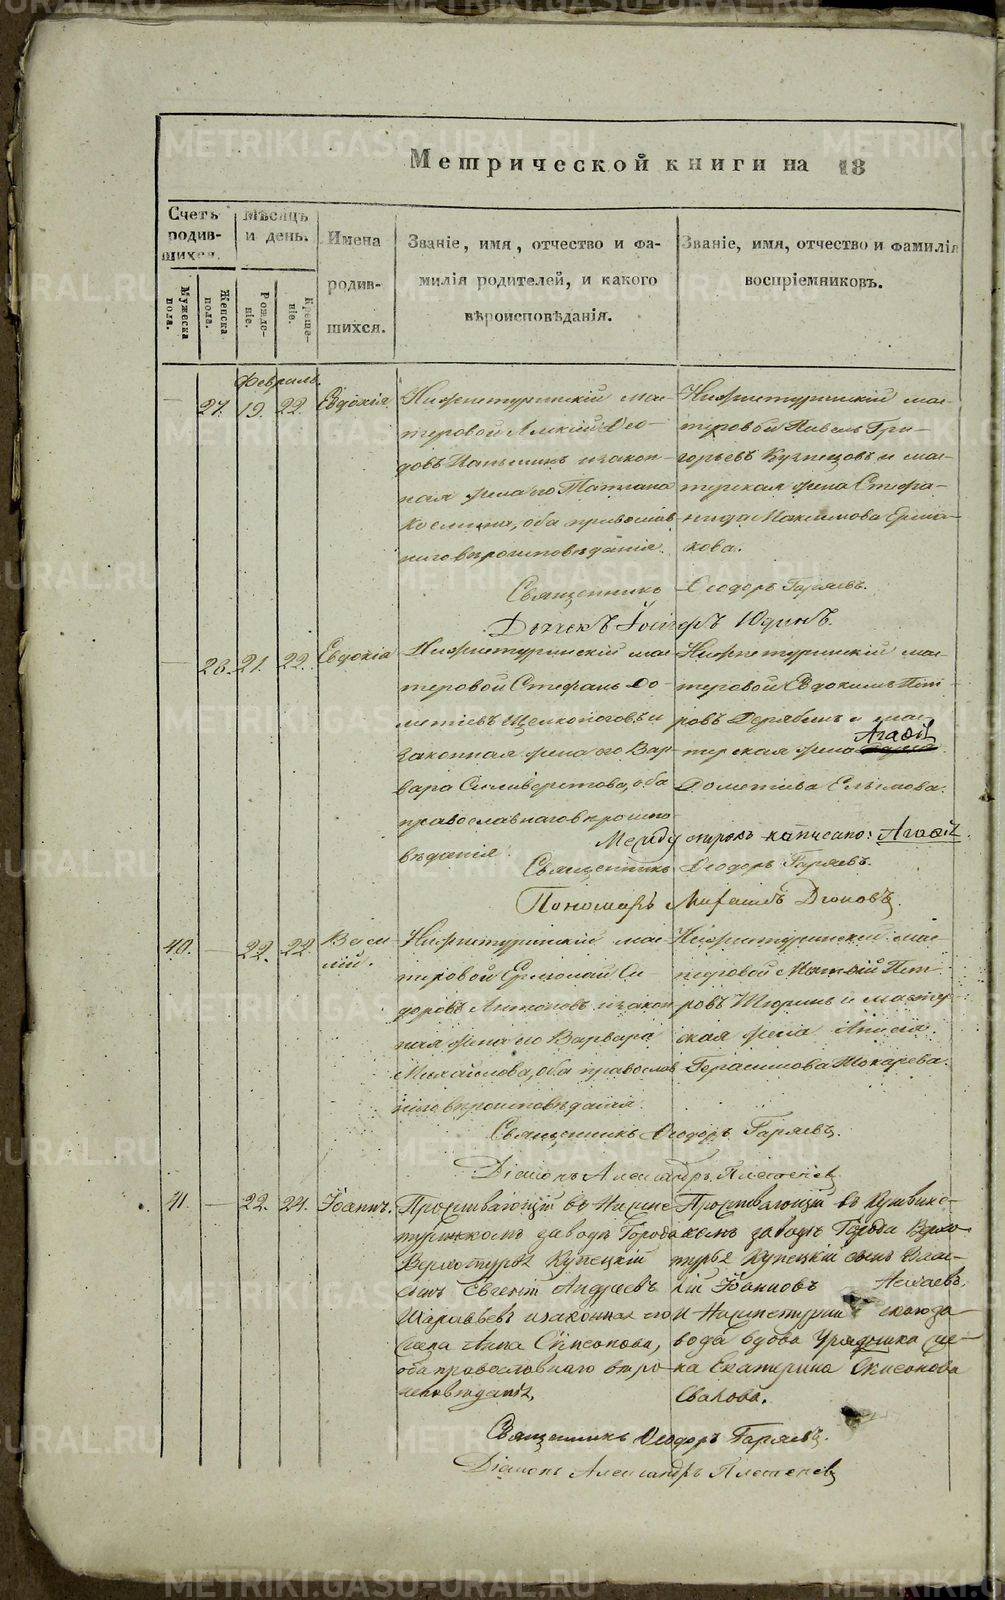 METRIKI.GASO-URAL.RU
Метрической книги на 18
Счетъ родив-шихся.
Мужеска пола.
Женска пола.
Мѣсяцъ и день.
Рожде-ніе.
Креще-ніе.
Имена родив-шихся.
Званіе, имя, отчество и фа-
милія родителей, и какого
вѣроисповѣданія.
Званіе, имя, отчество и фамилія
воспріемниковъ.
Февраль.
— 27. 19. 22. Евдокія.
Нижнетуринскій мас-
теровой Алексій Ѳео-
довъ и закон-
ная жена его Татіана
Космина, оба православ-
наго вѣроисповѣданія.
Нижнетуринскій мас-
теровой Павелъ Гри-
горьевъ Кузнецовъ и мас-
терская жена Стефа-
нида Максимова Ерма-
кова.
Священникъ Ѳеодоръ Гаряевъ.
Дьячекъ Іосифъ Юдинъ.
— 28. 21. 22. Евдокія
Нижнетуринскій мас-
теровой Стефанъ До-
метіевъ Щелконоговъ и
законная жена его Вар-
вара Силиверстова, оба
православнаго вѣроиспо-
вѣданія.
Нижнетуринскій мас-
теровой Евдокимъ Пет-
ровъ Дерябинъ и мас-
терская жена Агафія
Дометіева Елькова.
Между строкъ написано: Агафія.
Священникъ Ѳеодоръ Гаряевъ.
Пономарь Михаилъ Дюковъ.
40. — 22. 22. Васи-
лій.
Нижнетуринскій мас-
теровой Ермолай Си-
доровъ Антоновъ и закон-
ная жена его Варвара
Михайлова, оба православ-
наго вѣроисповѣданія.
Нижнетуринскій мас-
теровой Матѳій Пет-
ровъ Тюринъ и мастер-
ская жена Анисія
Герасимова Токарева.
Священникъ Ѳеодоръ Гаряевъ.
Діаконъ Александръ Плетеневъ
41. — 22. 24. Іоаннъ.
Проживающій въ Нижне-
туринскомъ заводѣ Города
Верхотурья Купецкій
сынъ Евгеній Андреевъ
и законная его
жена Анна Симеонова,
оба православнаго вѣро-
исповѣданія,
Проживающій въ Кушвин-
скомъ заводѣ Города Верхо-
турья Купецкій сынъ Васи-
лій Іоанновъ
и Нижнетуринскаго за-
вода вдова Урядника же-
на Екатерина Симеонова
Сватова.
Священникъ Ѳеодоръ Гаряевъ.
Діаконъ Александръ Плетеневъ